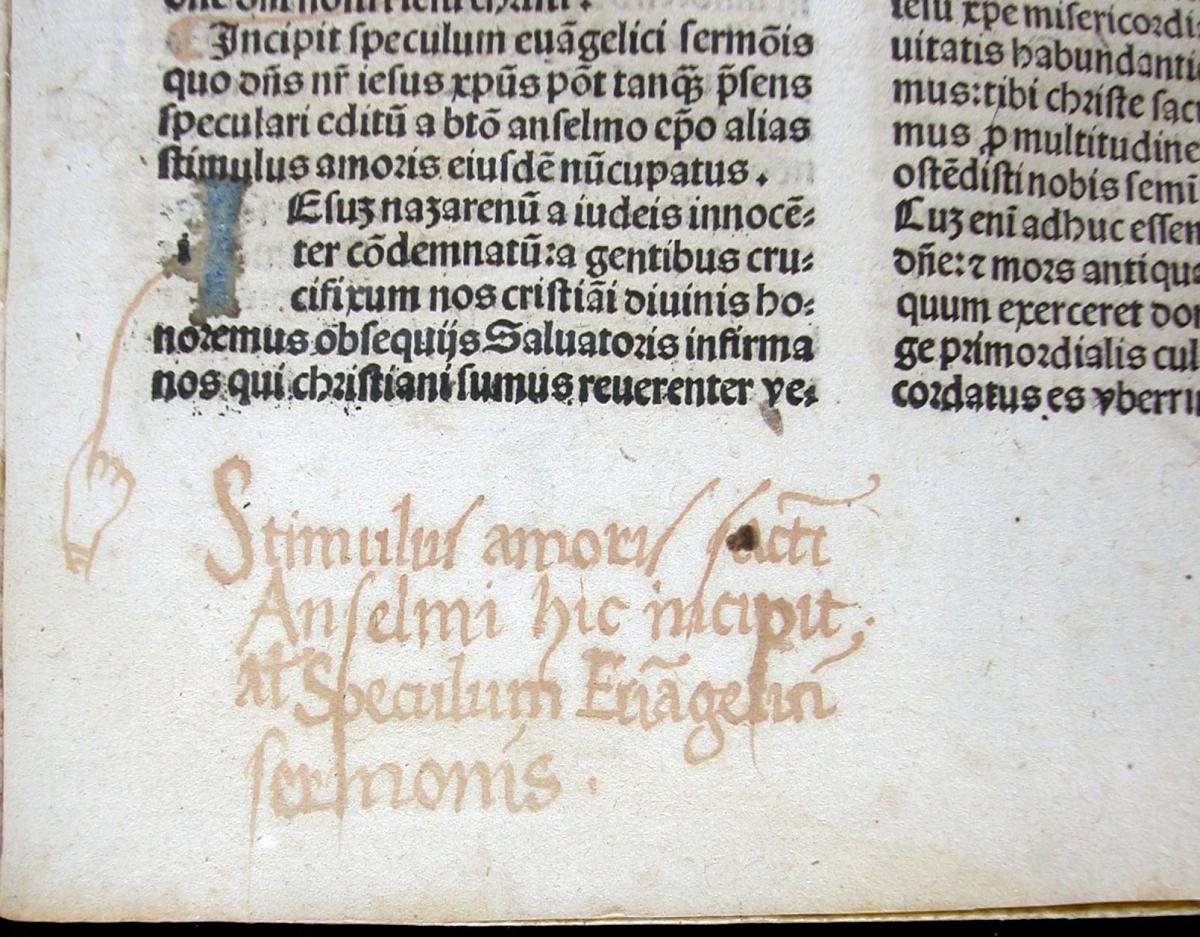 Incipit speculum euãgelici sermõis
quo dñs nr̃ iesus xpũs põt tanq̃ p̃sens
speculari editũ a btõ anselmo ep̃o alias
stimulus amoris eiusdẽ nũcupatus.
IEsuȝ naȝarenũ a iudeis innocẽ⸗
ter cõdemnatũ:a gentibus cru⸗
cifixum nos cristiãi diuinis ho⸗
noremus obsequijs Saluatoris infirma
nos qui christiani sumus reuerenter ve⸗
iesu xpe misericordi
uitatis habundanti
mus:tibi christe sac
mus ꝓ multitudine
ostẽdisti nobis semi
Cuȝ enĩ adhuc essen
dñe:⁊ mors antiqu
quum exerceret do
ge primordialis cul
cordatus es vberri
i
Stimulus amoris sãcti
Anselmi hic incipit;
al Speculum Euãgelici
sermonis.